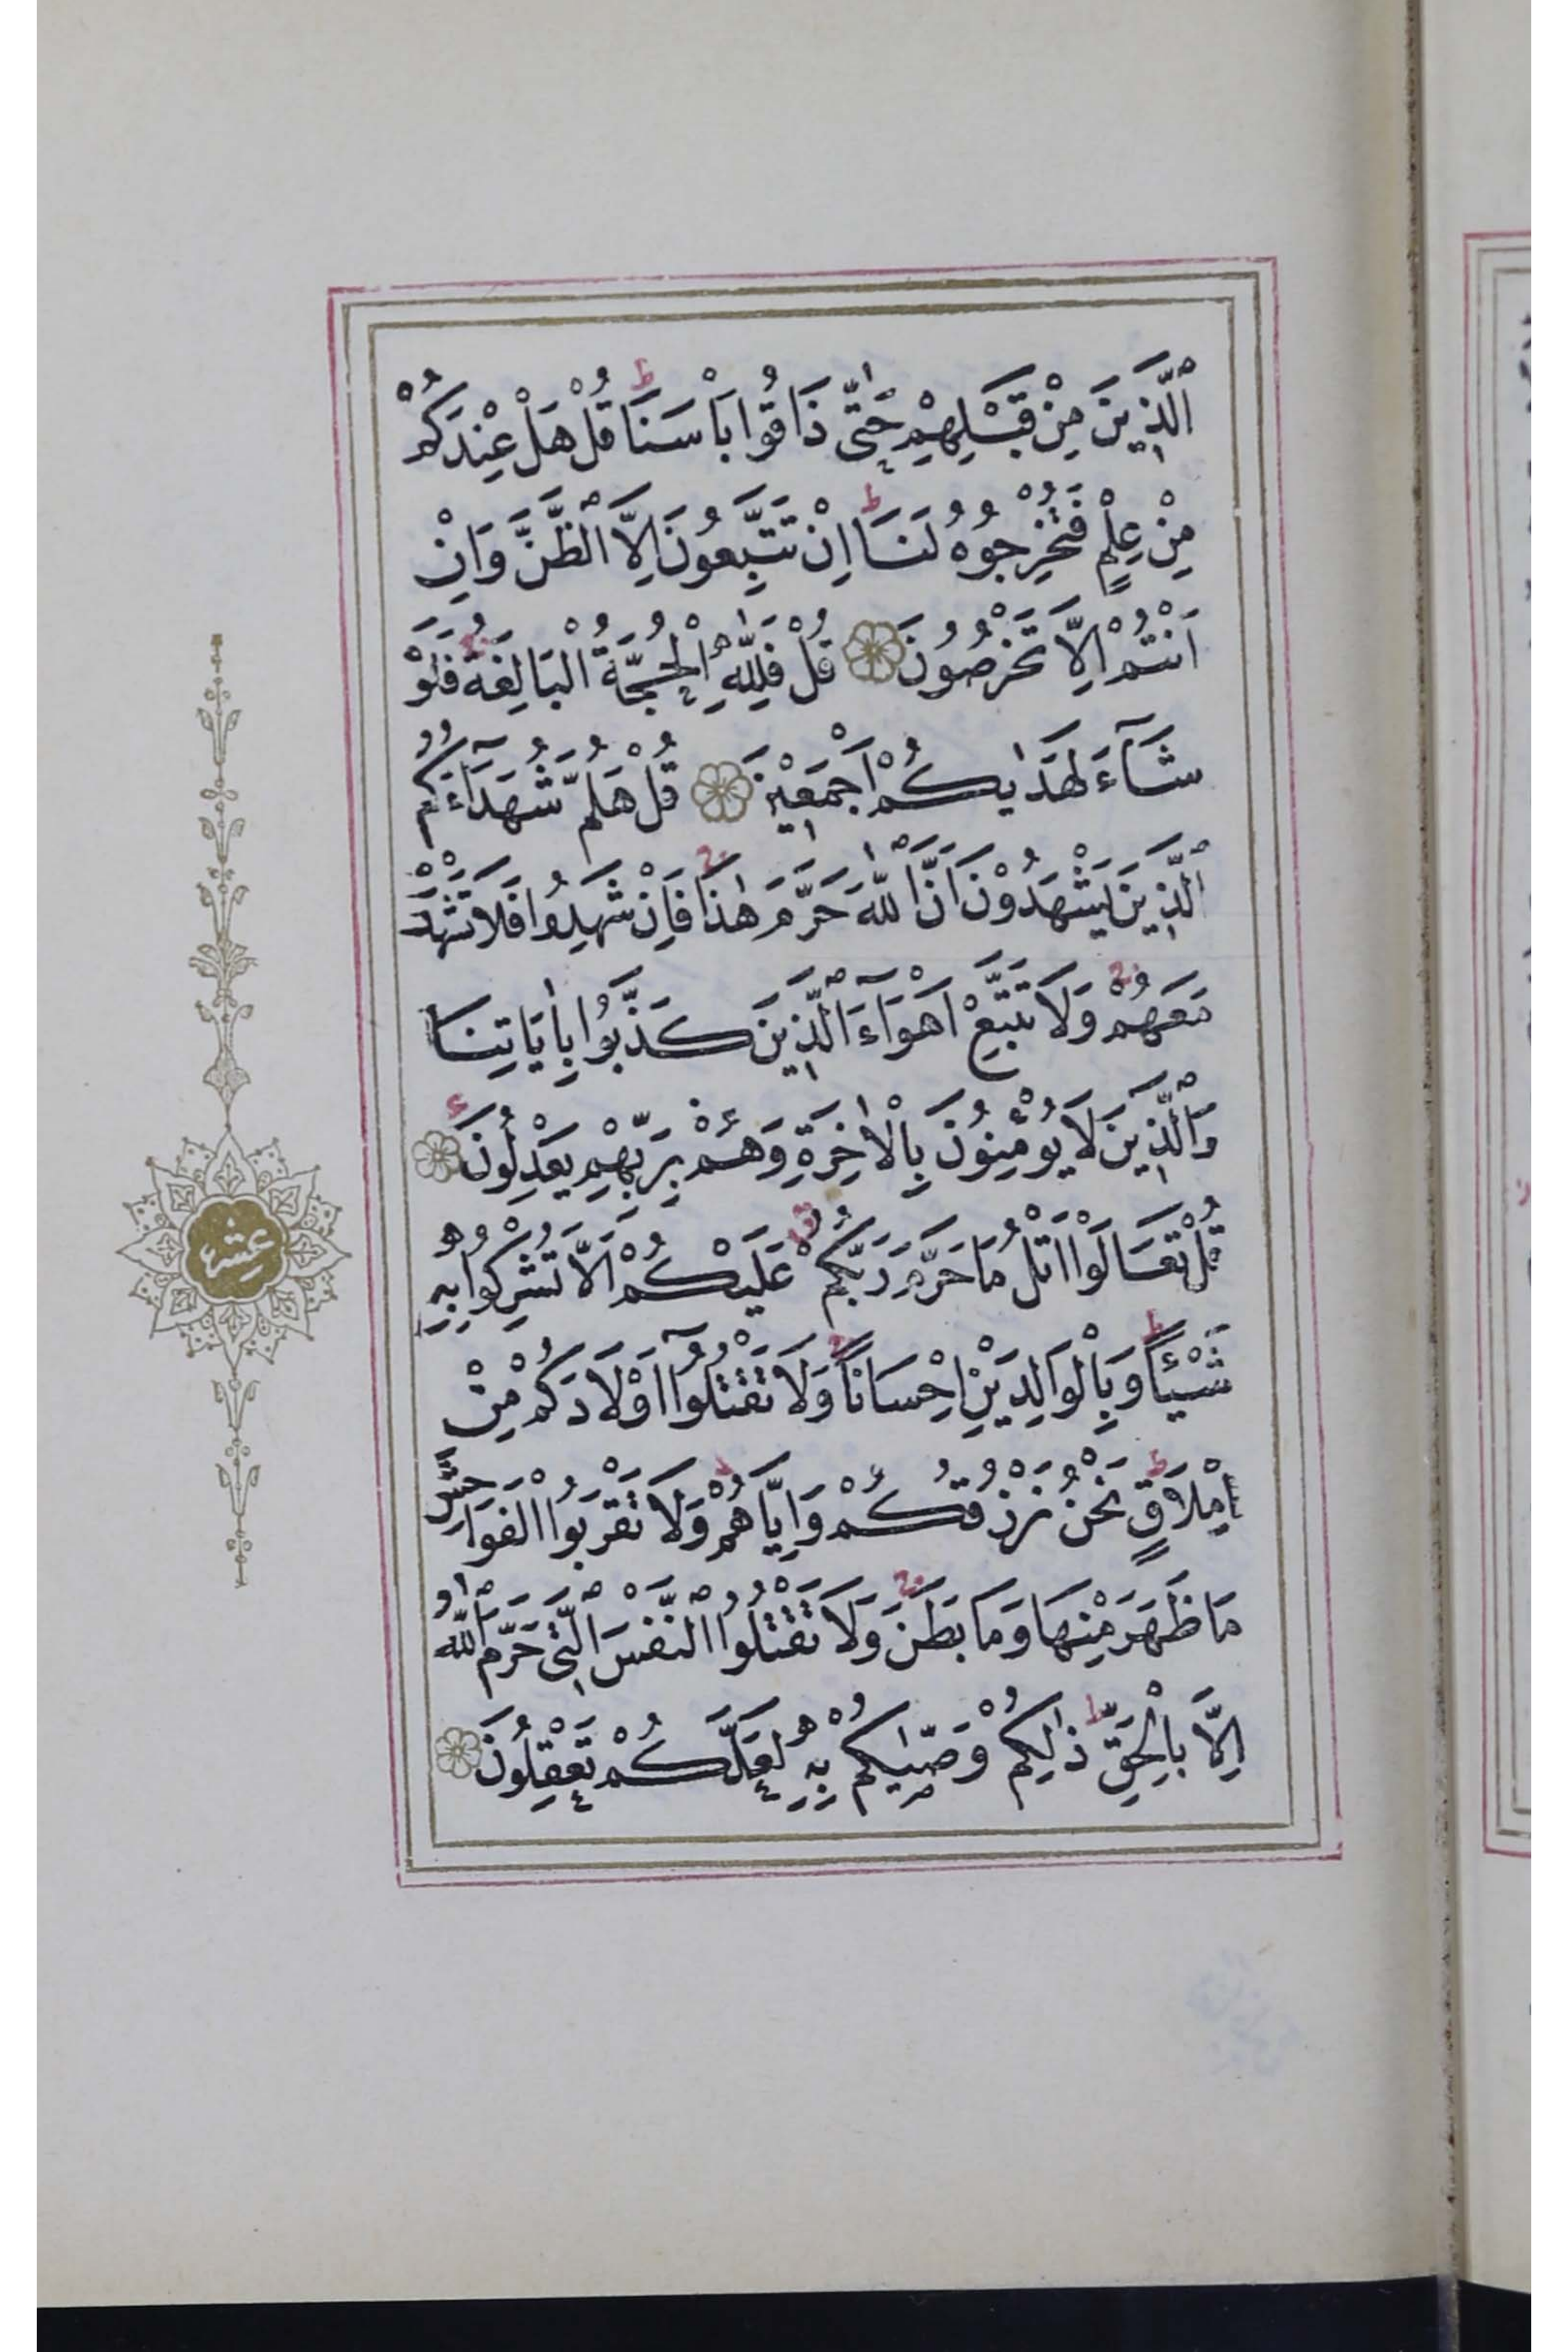 اَلَّذِينَ مِنْ قَبْلِهِمْ حَتّٰى ذَاقُوا بَاْسَنَا ط قُلْ هَلْ عِنْدَكُمْ
مِنْ عِلْمٍ فَتُخْرِجُوهُ لَنَا ط اِنْ تَتَّبِعُونَ اِلَّا الظَّنَّ وَاِنْ
اَنْتُمْ اِلَّا تَخْرُصُونَ قُلْ فَلِلّٰهِ الْحُجَّةُ الْبَالِغَةُ ج فَلَوْ
شَآءَ لَهَدٰيكُمْ اَجْمَعِينَ قُلْ هَلُمَّ شُهَدَآءَكُمُ
الَّذِينَ يَشْهَدُونَ اَنَّ اللّٰهَ حَرَّمَ هٰذَا ج فَاِنْ شَهِدُوا فَلَا تَشْهَدْ
مَعَهُمْ ج وَلَا تَتَّبِعْ اَهْوَآءَ الَّذِينَ كَذَّبُوا بِاٰيَاتِنَا
وَالَّذِينَ لَا يُؤْمِنُونَ بِالْاٰخِرَةِ وَهُمْ بِرَبِّهِمْ يَعْدِلُونَ ع
قُلْ تَعَالَوْا اَتْلُ مَا حَرَّمَ رَبُّكُمْ عَلَيْكُمْ اَلَّا تُشْرِكُوا بِهِ
شَيْئًا ط وَبِالْوَالِدَيْنِ اِحْسَانًا ج وَلَا تَقْتُلُوٓا اَوْلَادَكُمْ مِنْ
اِمْلَاقٍ ط نَحْنُ نَرْزُقُكُمْ وَاِيَّاهُمْ ج وَلَا تَقْرَبُوا الْفَوَاحِشَ
مَا ظَهَرَ مِنْهَا وَمَا بَطَنَ ج وَلَا تَقْتُلُوا النَّفْسَ الَّتِى حَرَّمَ اللّٰهُ
اِلَّا بِالْحَقِّ ط ذٰلِكُمْ وَصّٰيكُمْ بِهِ لَعَلَّكُمْ تَعْقِلُونَ
عشر